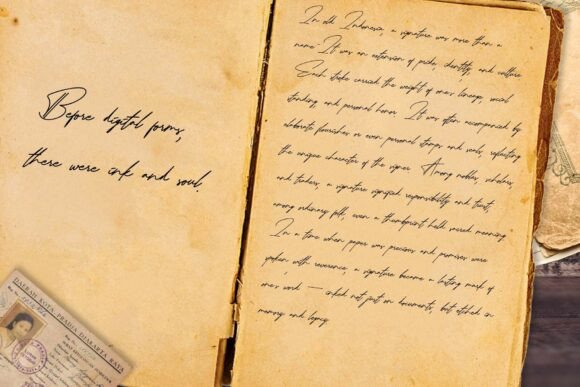 Before digital forms,
there were ink and soul.
In old Indonesia, a signature was more than a
name. It was an extension of pride, identity, and culture.
Each stroke carried the weight of one's lineage, social
standing and personal honor. It was often accompanied by
elaborate flourishes or even personal stamps and seals, reflecting
the unique character of the signer. Among nobles, scholars,
and traders, a signature signified responsibility and trust,
among ordinary folk, even a thumbprint held sacred meaning.
In a time when paper was precious and promises were
spoken with reverence, a signature became a lasting mark of
one's word — inked not just on documents, but etched in
memory and legacy.
DAERAH KOTA-PRADJA DJAKARTA RAYA